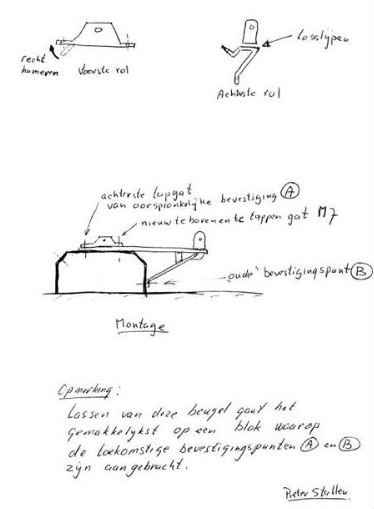 recht
hameren
Voorste rol
losslijpen
Achterste rol
achterste tapgat
van oorspronkelijke bevestiging A
nieuw te boren en te tappen gat M7
oude bevestigingspunt B
Montage
Opmerking:
Lassen van deze beugel gaat het
gemakkelijkst op een blok waarop
de toekomstige bevestigingspunten A en B
zijn aangebracht.
Pieter